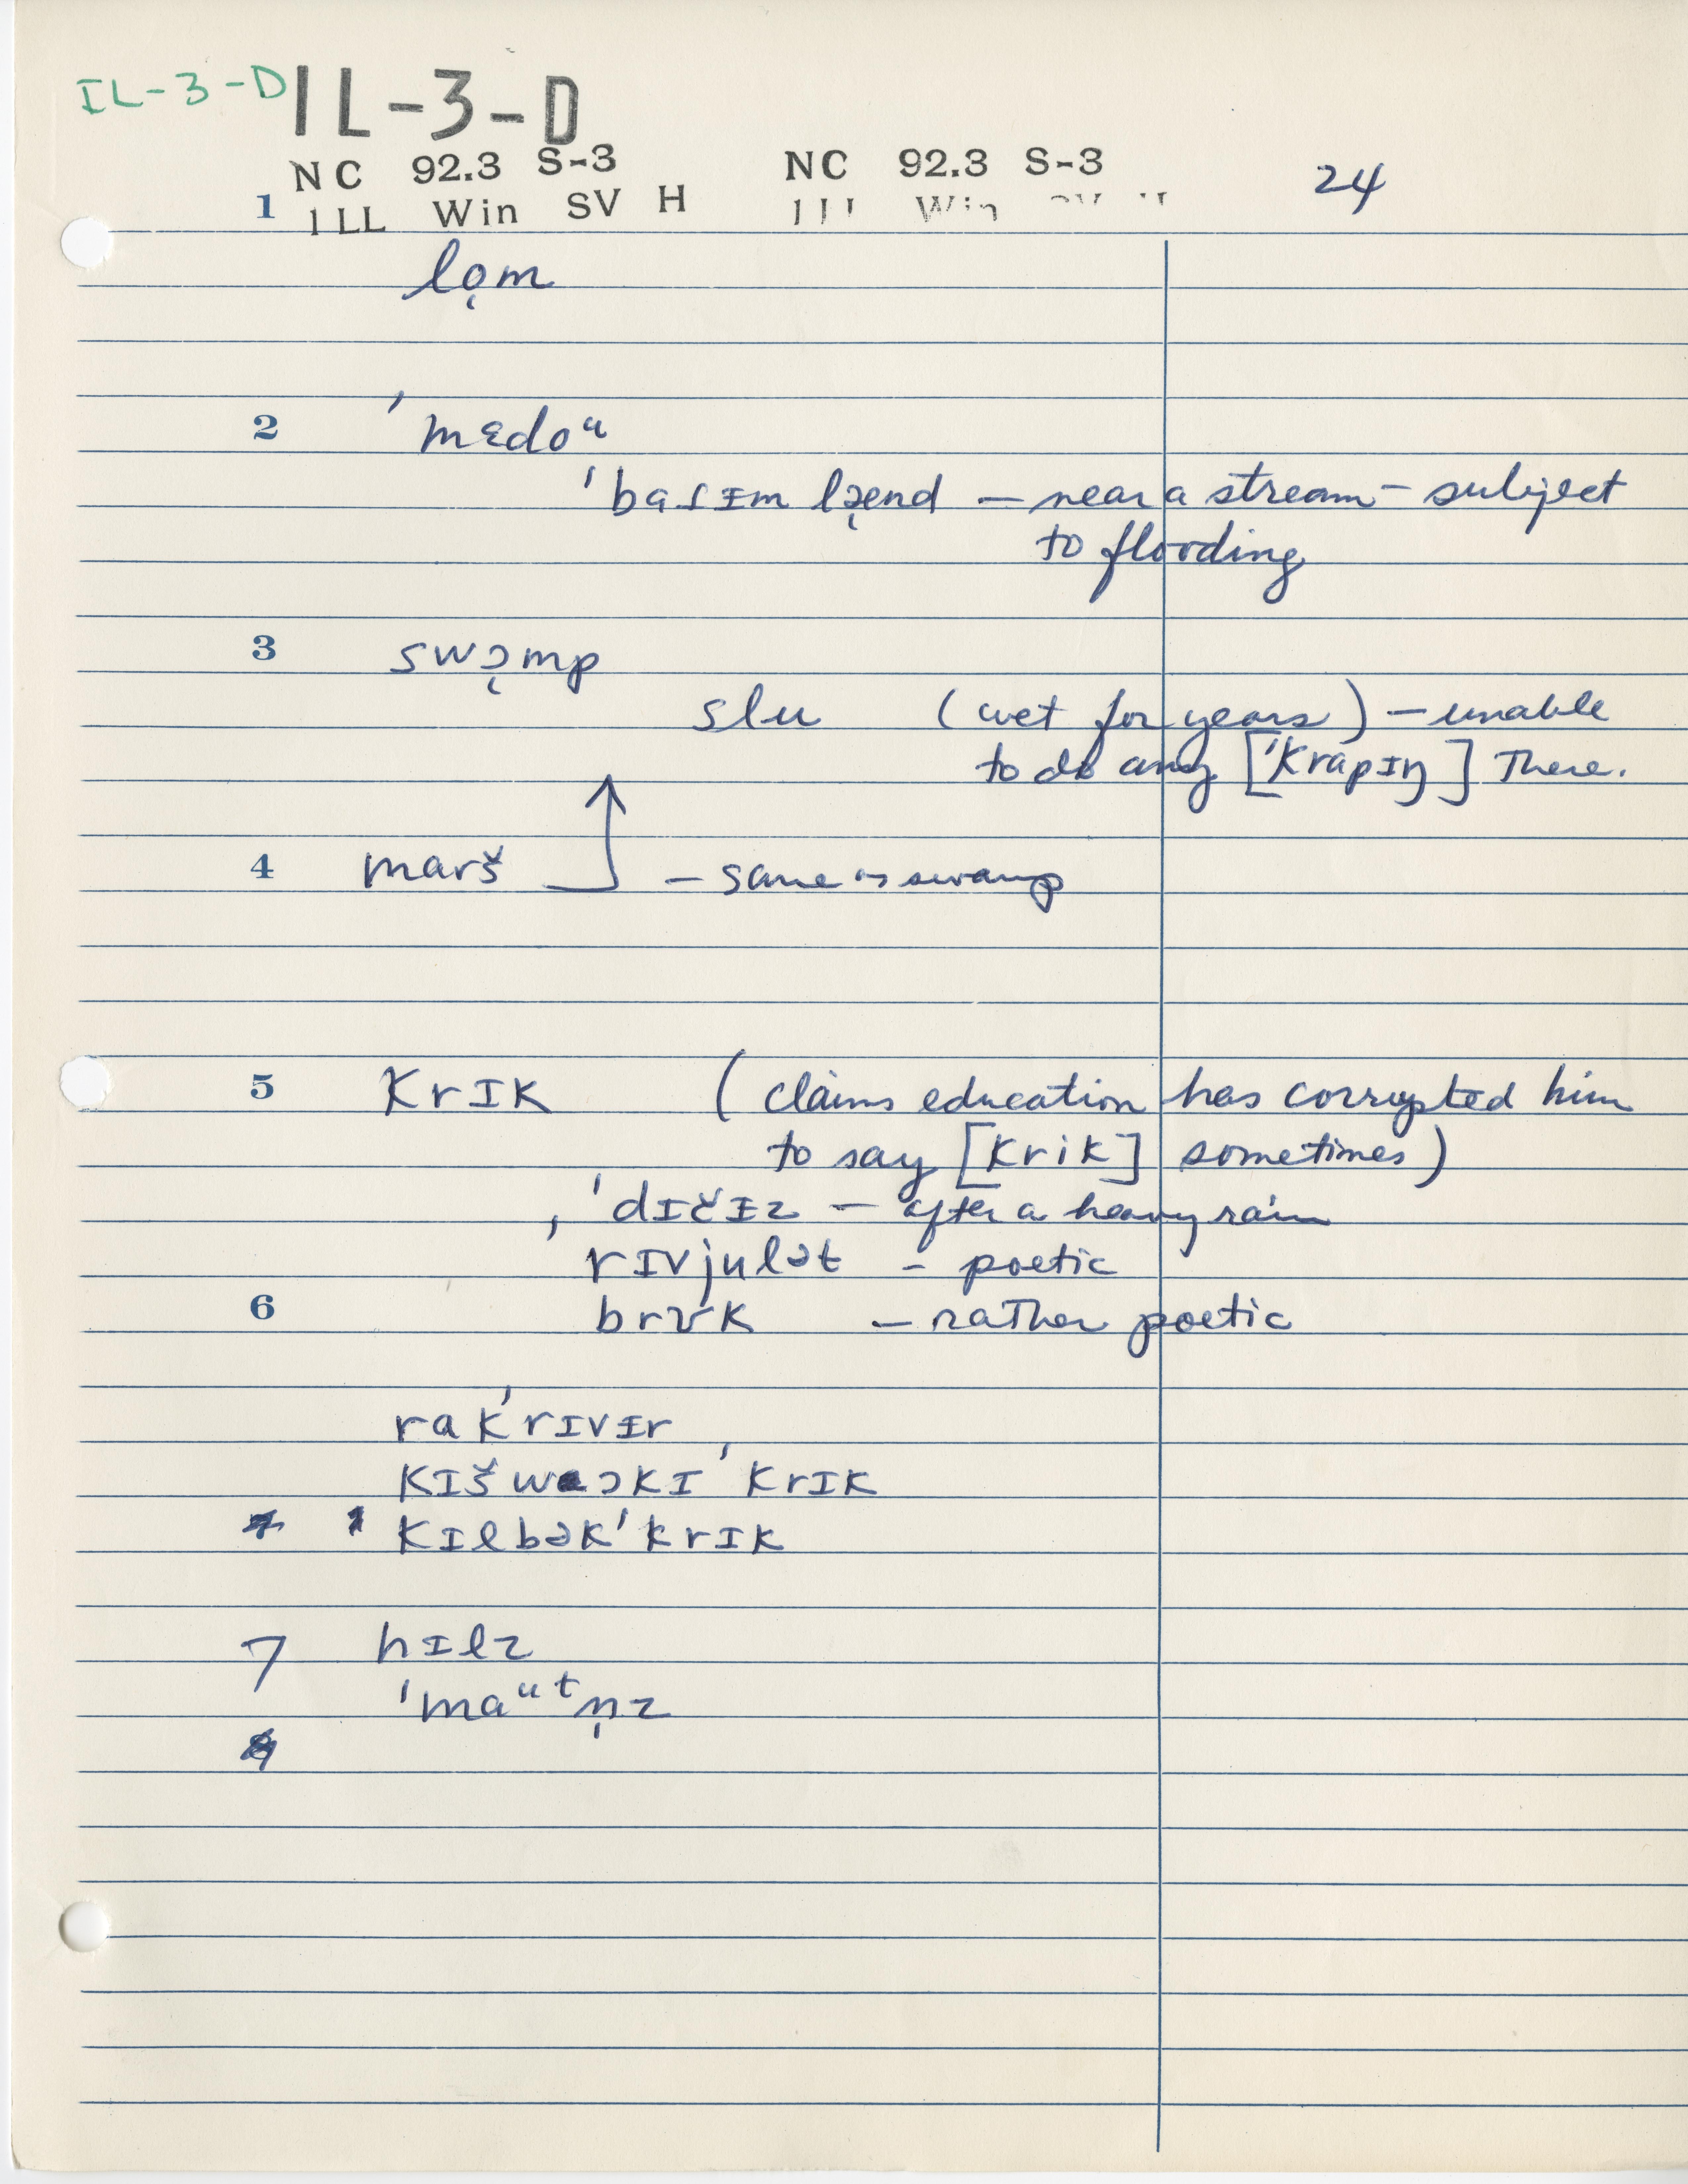 IL-3-D IL-3-D
NC 92.3 S-3 NC 92.3 S-3 24
1 ILL Win SV H ILL Win SV H
lo̜m
2 'mɛdoᵘ
'baɾᵻm læ̜nd — near a stream — subject
to flooding
3 swɔ̜mp
slu (wet for years) — unable
to do any ['krapɪŋ] There.
4 marš — same as swamp
5 krɪk (claims education has corrupted him
to say [krik] sometimes)
'dɪčᵻz — after a heavy rain
'rɪvjulət - poetic
6 brʊk — rather poetic
rak'rɪvᵻr
kɪšwɔkɪ'krɪk
kɪlbək'krɪk
7 hɪlz
'maᵘᵗn̩z